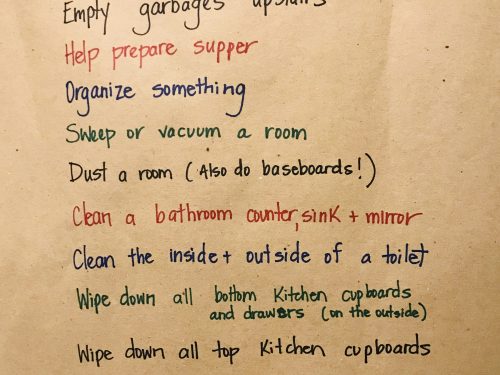 Empty garbages upstairs
Help prepare supper
Organize something
Sweep or vacuum a room
Dust a room (Also do baseboards!)
Clean a bathroom counter, sink + mirror
Clean the inside + outside of a toilet
Wipe down all bottom Kitchen cupboards
and drawers (on the outside)
Wipe down all top Kitchen cupboards